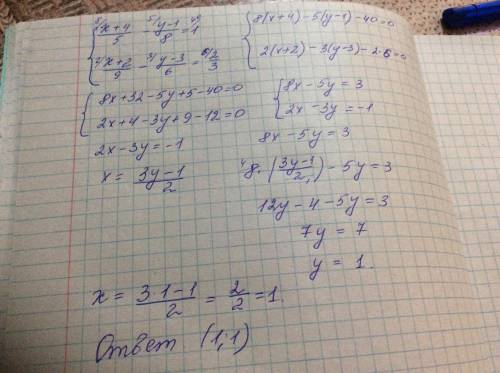 { ⁸⁾(x+4)/5 - ⁵⁾(y-1)/8 = ⁴⁰⁾1
{ ²⁾(x+2)/9 - ³⁾(y-3)/6 = ⁶⁾2/3
{ 8(x+4)-5(y-1)-40=0
{ 2(x+2)-3(y-3)-2·6=0
{ 8x+32-5y+5-40=0
{ 2x+4-3y+9-12=0
2x-3y=-1
x = (3y-1)/2
{ 8x-5y=3
{ 2x-3y=-1
8x-5y=3
⁴8·((3y-1)/2₁)-5y=3
12y-4-5y=3
7y=7
y=1.
x = (3·1-1)/2 = 2/2 = 1.
Ответ (1;1)